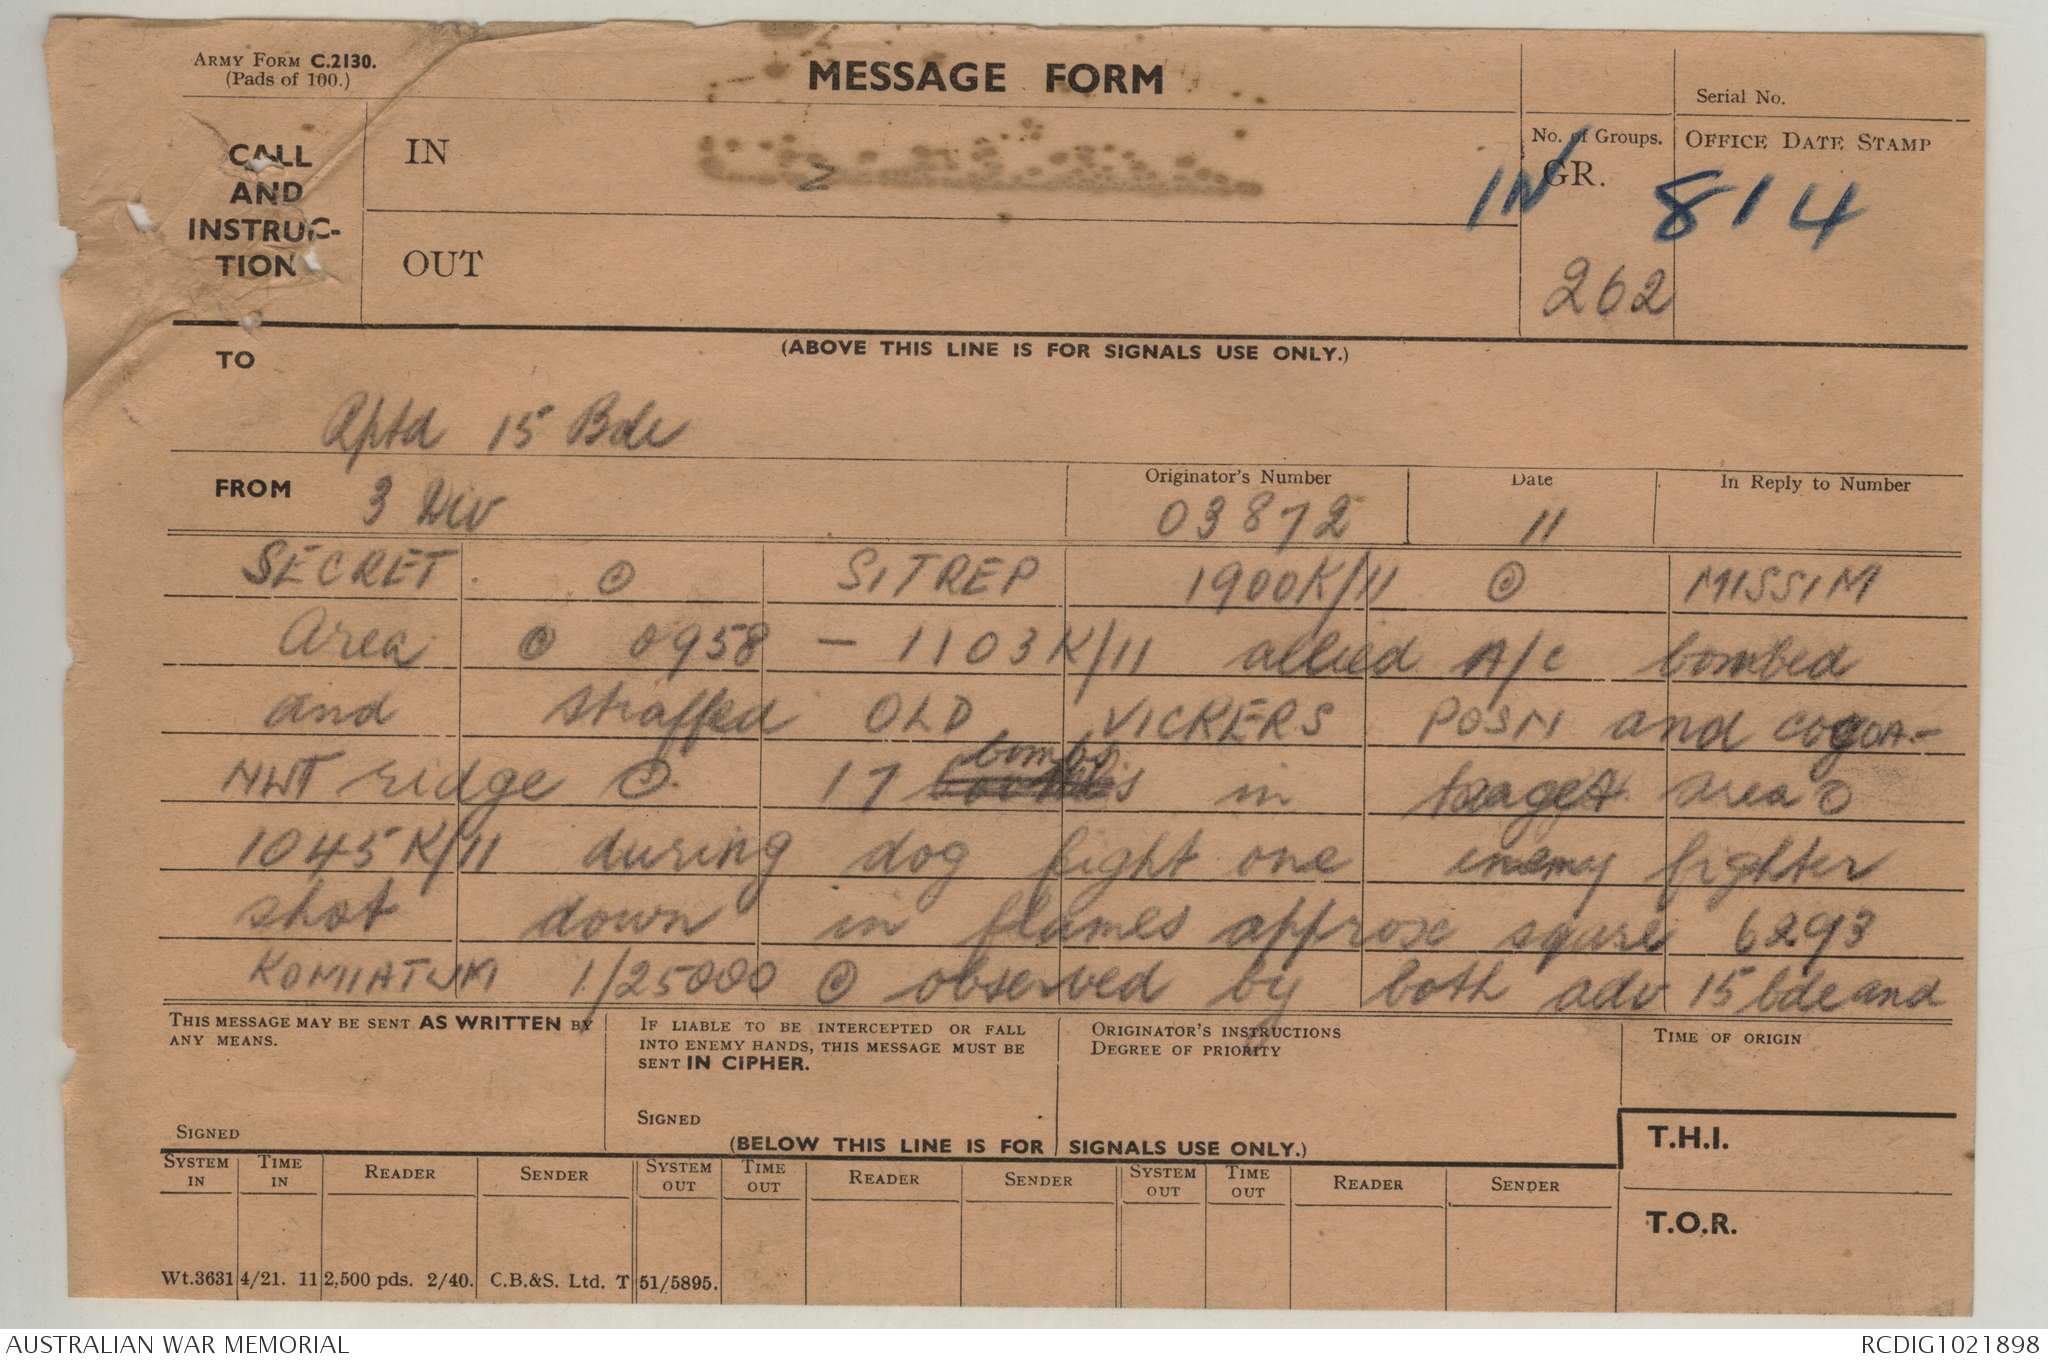 ARMY FORM C.2130.
(Pads of 100.)
MESSAGE FORM
Serial No.
CALL
AND
INSTRUC-
TION
IN
2
No. of Groups.
GR.
OFFICE DATE STAMP
IN 814
OUT
262
(ABOVE THIS LINE IS FOR SIGNALS USE ONLY.)
TO
Rptd 15 Bde
FROM
3 Div
Originator's Number
03872
Date
11
In Reply to Number
SECRET. © SITREP 1900K/11 © MISSIM
Area © 0958 - 1103K/11 allied A/c bombed
and straffed OLD VICKERS POSN and COCOA-
NWT ridge ©. 17 bombs in target area ©
1045K/11 during dog fight one enemy fighter
shot down in flames approx square 6293
KOMIATUM 1/25000 © observed by both adv 15 bde and
THIS MESSAGE MAY BE SENT AS WRITTEN BY
ANY MEANS.
SIGNED
IF LIABLE TO BE INTERCEPTED OR FALL
INTO ENEMY HANDS, THIS MESSAGE MUST BE
SENT IN CIPHER.
SIGNED
ORIGINATOR'S INSTRUCTIONS
DEGREE OF PRIORITY
TIME OF ORIGIN
(BELOW THIS LINE IS FOR SIGNALS USE ONLY.)
T.H.I.
SYSTEM IN TIME IN READER SENDER SYSTEM OUT TIME OUT READER SENDER SYSTEM OUT TIME OUT READER SENDER
T.O.R.
Wt.3631 4/21. 11 2,500 pds. 2/40. C.B.&S. Ltd. T 51/5895.
AUSTRALIAN WAR MEMORIAL
RCDIG1021898